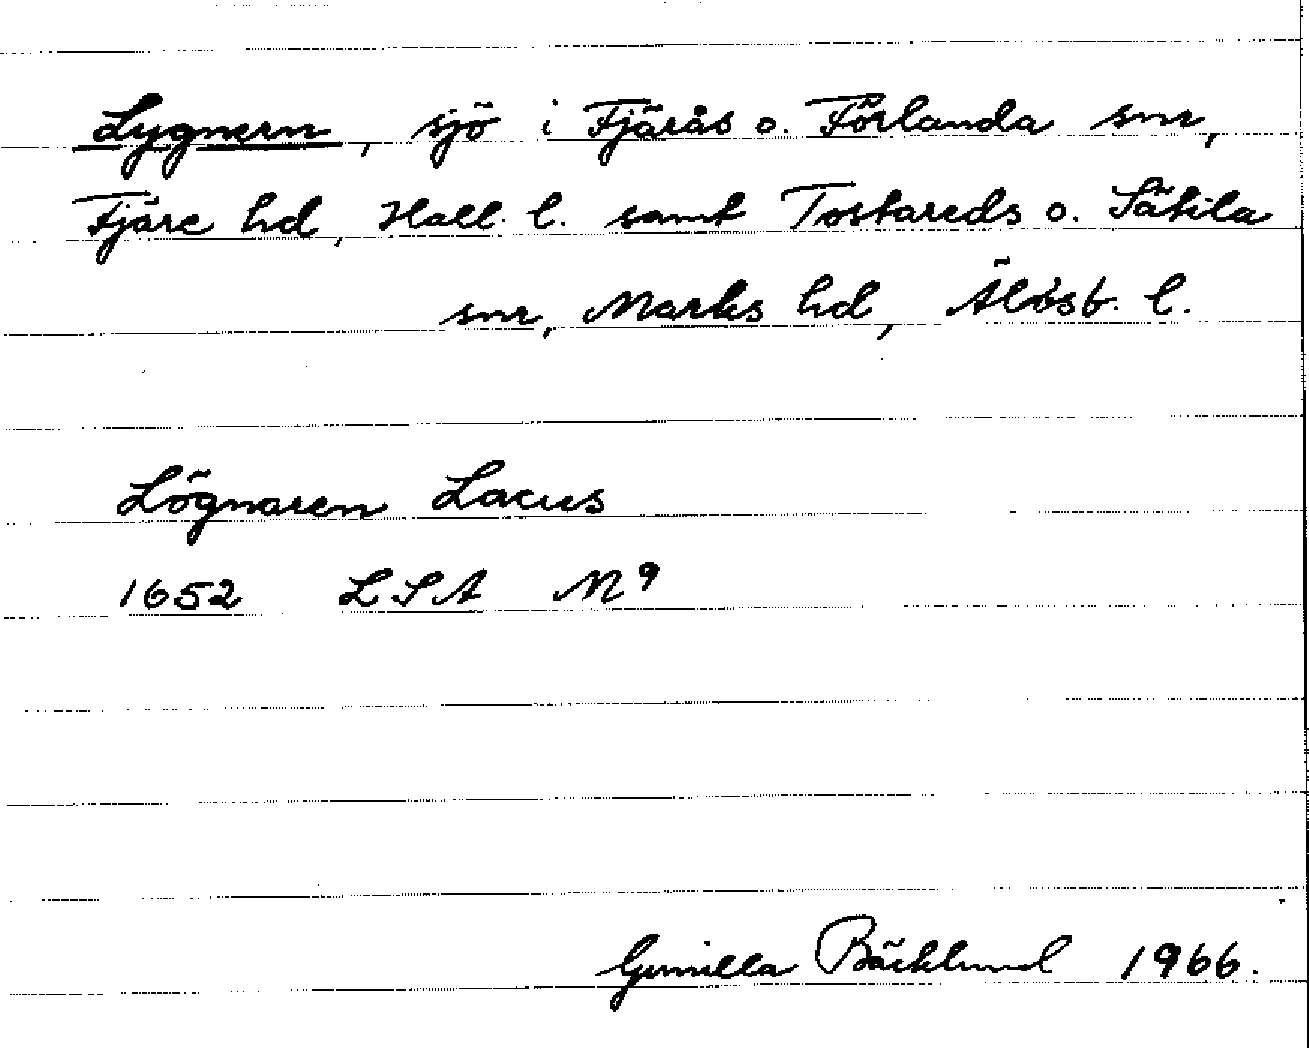 Lygnern, sjö i Fjärås o. Förlanda snr,
Fjäre hd, Hall. l. samt Tostareds o. Sätila
snr, Marks hd, Älvsb. l.
Lögnaren Lacus
1652 LSA M9
Gunilla Bäcklund 1966.